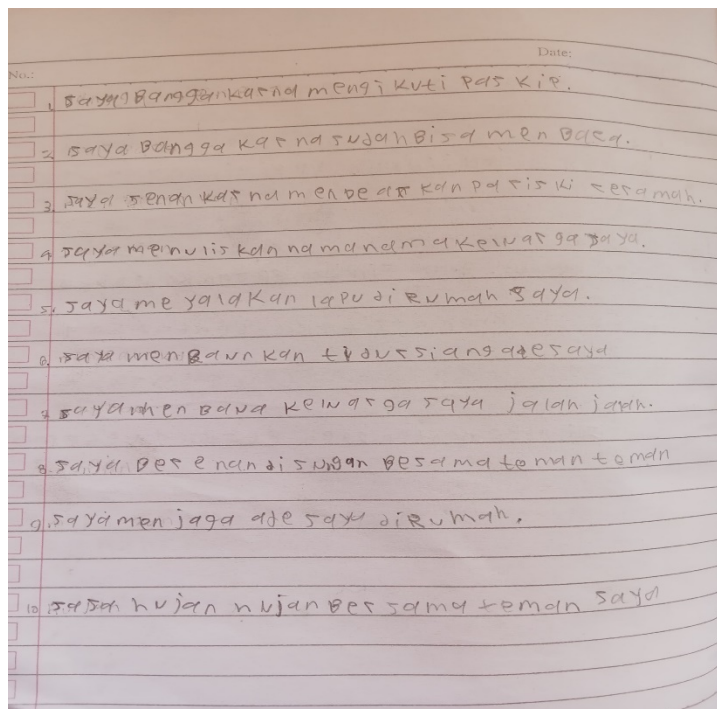 Date:
No.:
1. saya Banggankarna mengikuti pas kip.
2. saya Bangga karna sudah Bisa menBaca.
3. saya senan karna menDeatkan pariski ceramah.
4. saya menuliskan nama nama keluarga saya.
5. saya meyalakan lapu diRumah saya.
6. saya menBaunkan tidur siang ade saya
7. saya menBava keluarga saya jalan jaan.
8. saya Berenan disungan Besama teman teman
9. saya menjaga ade saya diRumah.
10. sasa hujan hujan Bersama teman saya